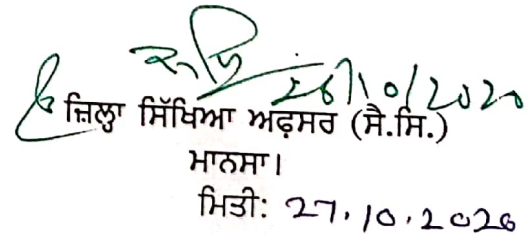 26/10/2020
ਜ਼ਿਲ੍ਹਾ ਸਿੱਖਿਆ ਅਫ਼ਸਰ (ਸੈ.ਸਿ.)
ਮਾਨਸਾ।
ਮਿਤੀ: 27.10.2020